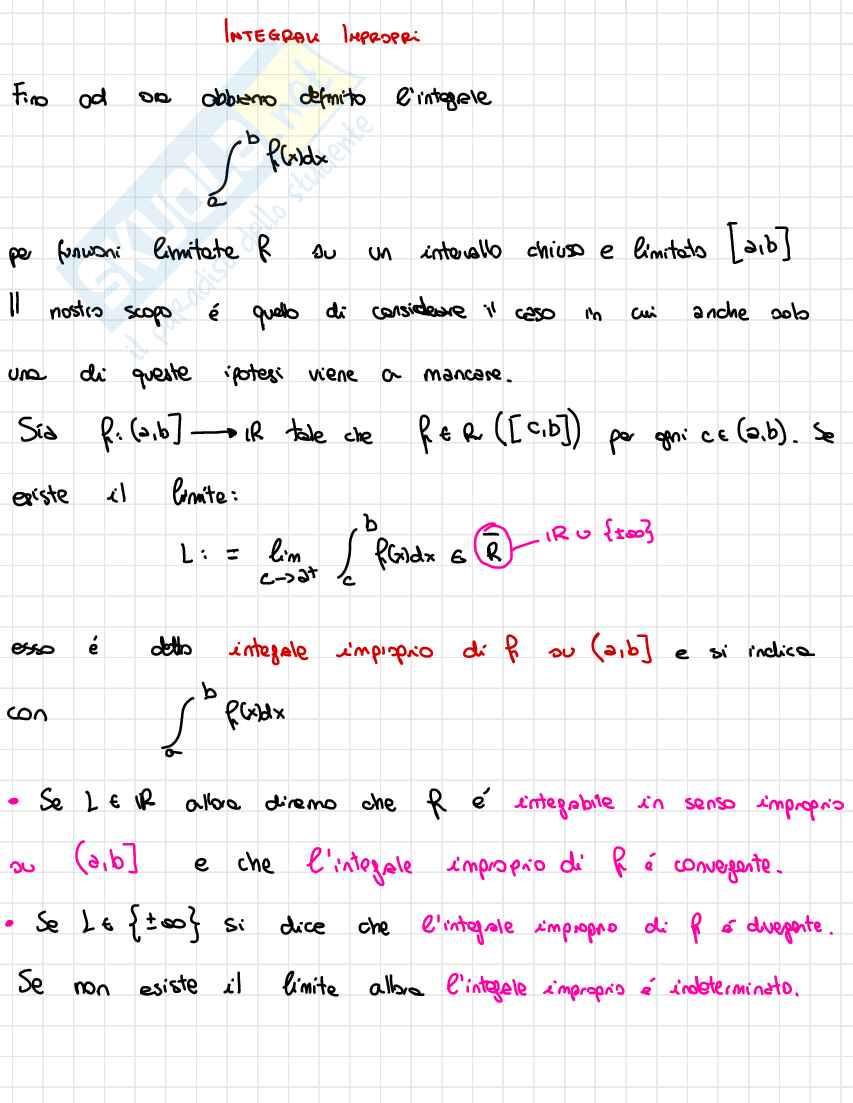 INTEGRALI IMPROPRI
Fino ad ora abbiamo definito l'integrale
∫_a^b f(x)dx
per funzioni limitate f su un intervallo chiuso e limitato [a,b]
Il nostro scopo é quello di considerare il caso in cui anche solo
una di queste ipotesi viene a mancare.
Sia f: (a,b] → IR tale che f ∈ R ([c,b]) per ogni c ∈ (a,b). Se
esiste il limite:
L: = lim_{c→a+} ∫_c^b f(x)dx ∈ R̅ IR ∪ {±∞}
esso é detto integrale improprio di f su (a,b] e si indica
con ∫_a^b f(x)dx
• Se L ∈ IR allora diremo che f é integrabile in senso improprio
su (a,b] e che l'integrale improprio di f é convergente.
• Se L ∈ {±∞} si dice che l'integrale improprio di f é divergente.
Se non esiste il limite allora l'integrale improprio é indeterminato.
SKUOLA.net
il paradiso dello studente